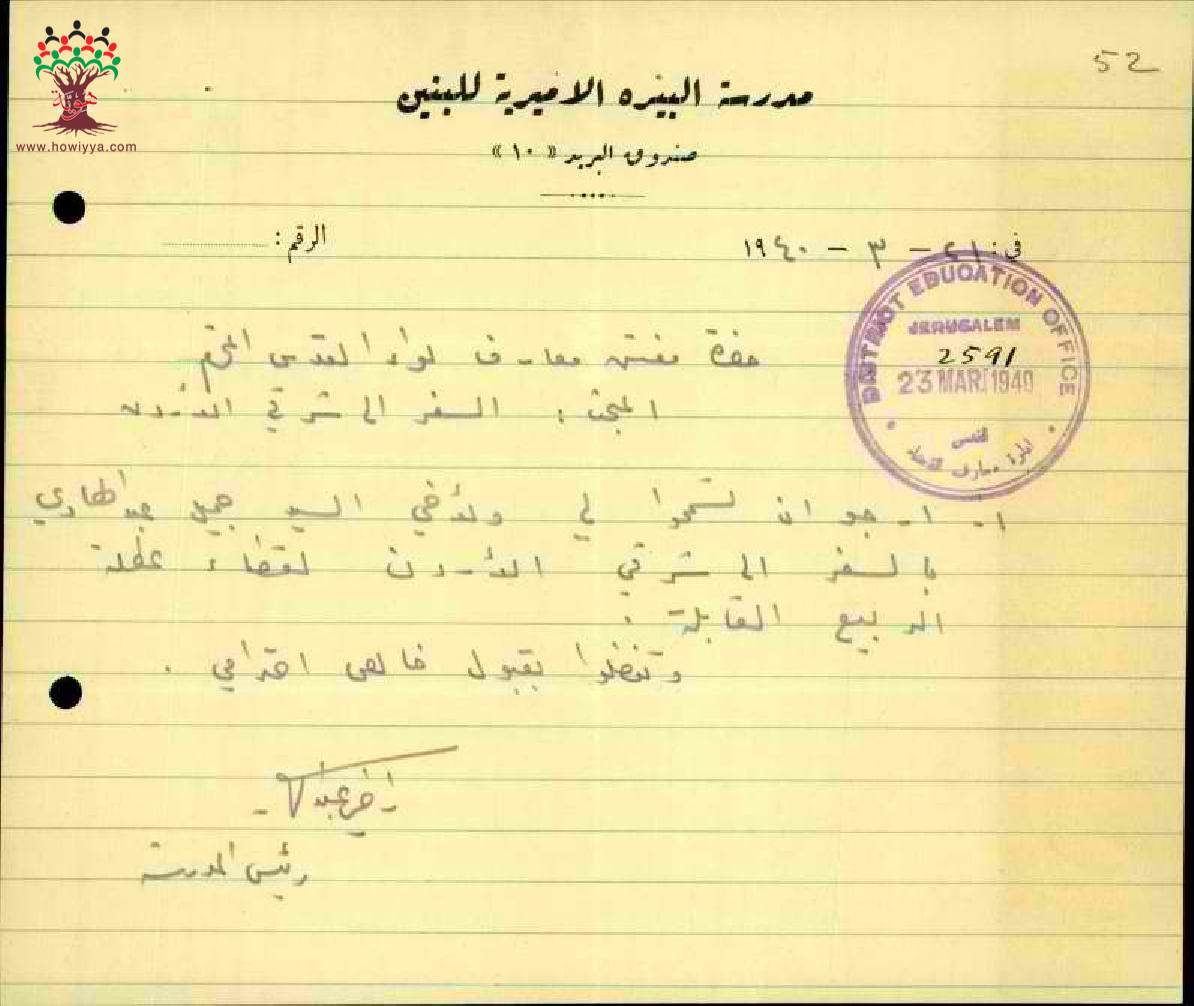 52
هوية
www.howiyya.com
مدرسة البيره الاميرية للبنين
صندوق البريد « ١٠ »
في : ٢١ - ٣ - ١٩٤٠
الرقم :
DISTRICT EDUCATION OFFICE
JERUSALEM
2591
23 MAR 1940
القدس
حضرة مفتش معارف لواء القدس المحترم
المبحث : السفر الى شرقي الأردن
١- ارجو ان تسمحوا لي ولأخي السيد جميل عبد الهادي
بالسفر الى شرقي الأردن لقضاء عطلة
الربيع القابلة .
وتفضلوا بقبول خالص احترامي .
رئيس المدرسة